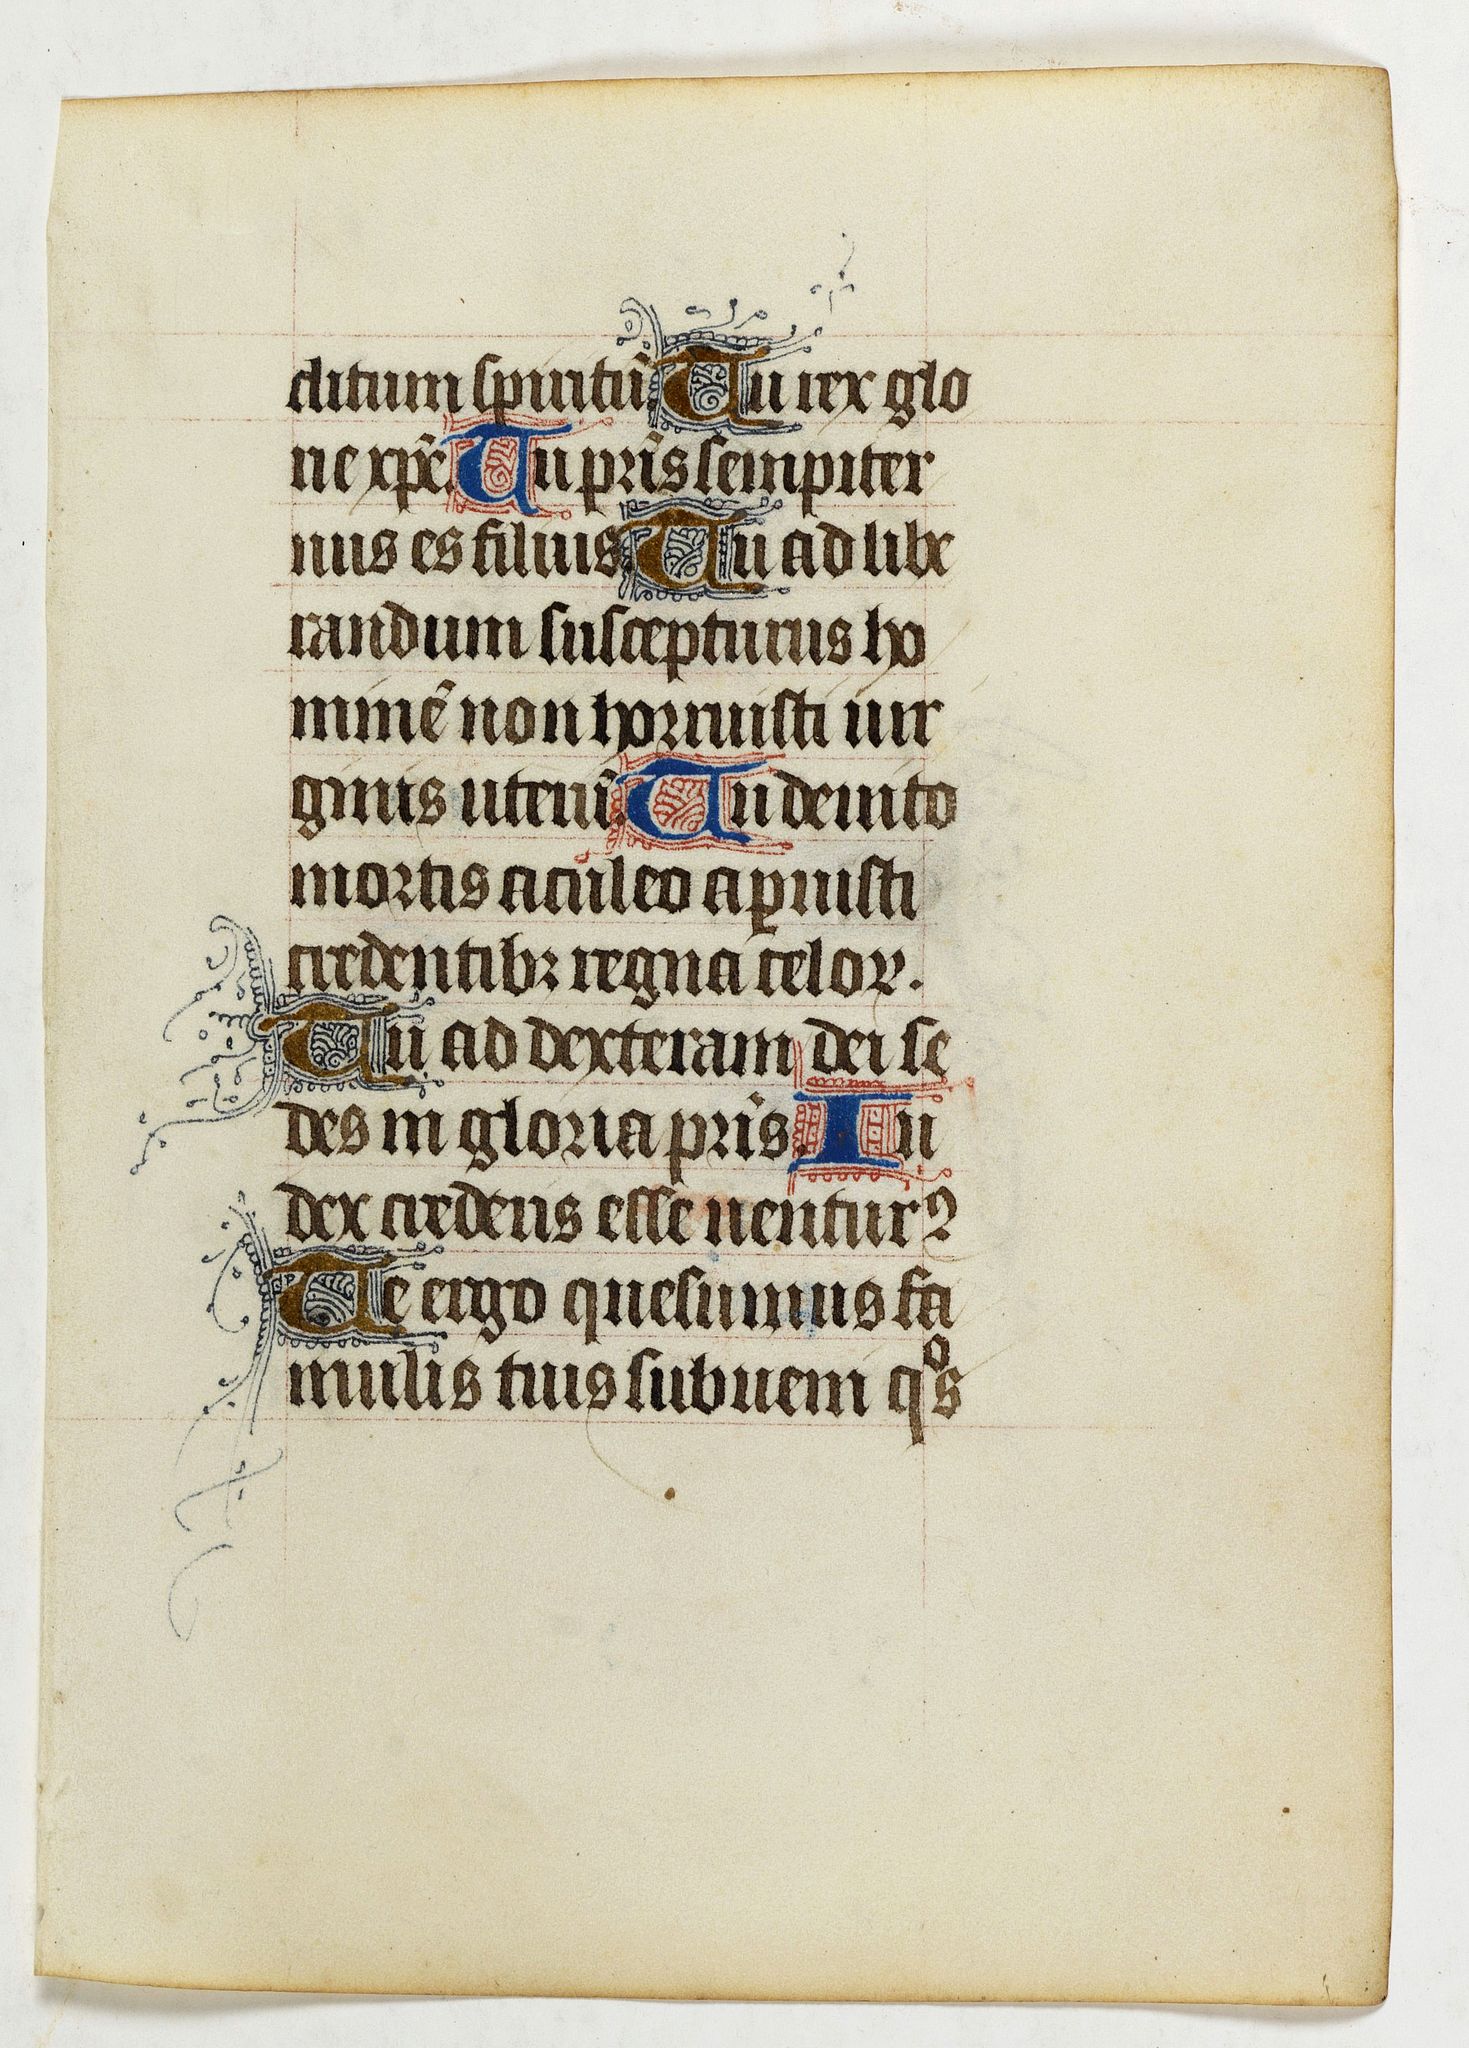 clitum spiritū. Tu rex glo
rie xp̄e. Tu pr̄is sempiter
nus es filius. Tu ad libe
randum suscepturus ho
minē non horruisti uir
ginis uterū. Tu deuicto
mortis aculeo aꝑuisti
credentibꝫ regna celoꝝ.
Tu ad dexteram dei se
des in gloria pr̄is. Iu
dex crederis esse uentur9
Te ergo quesumus fa
mulis tuis subueni qͦs